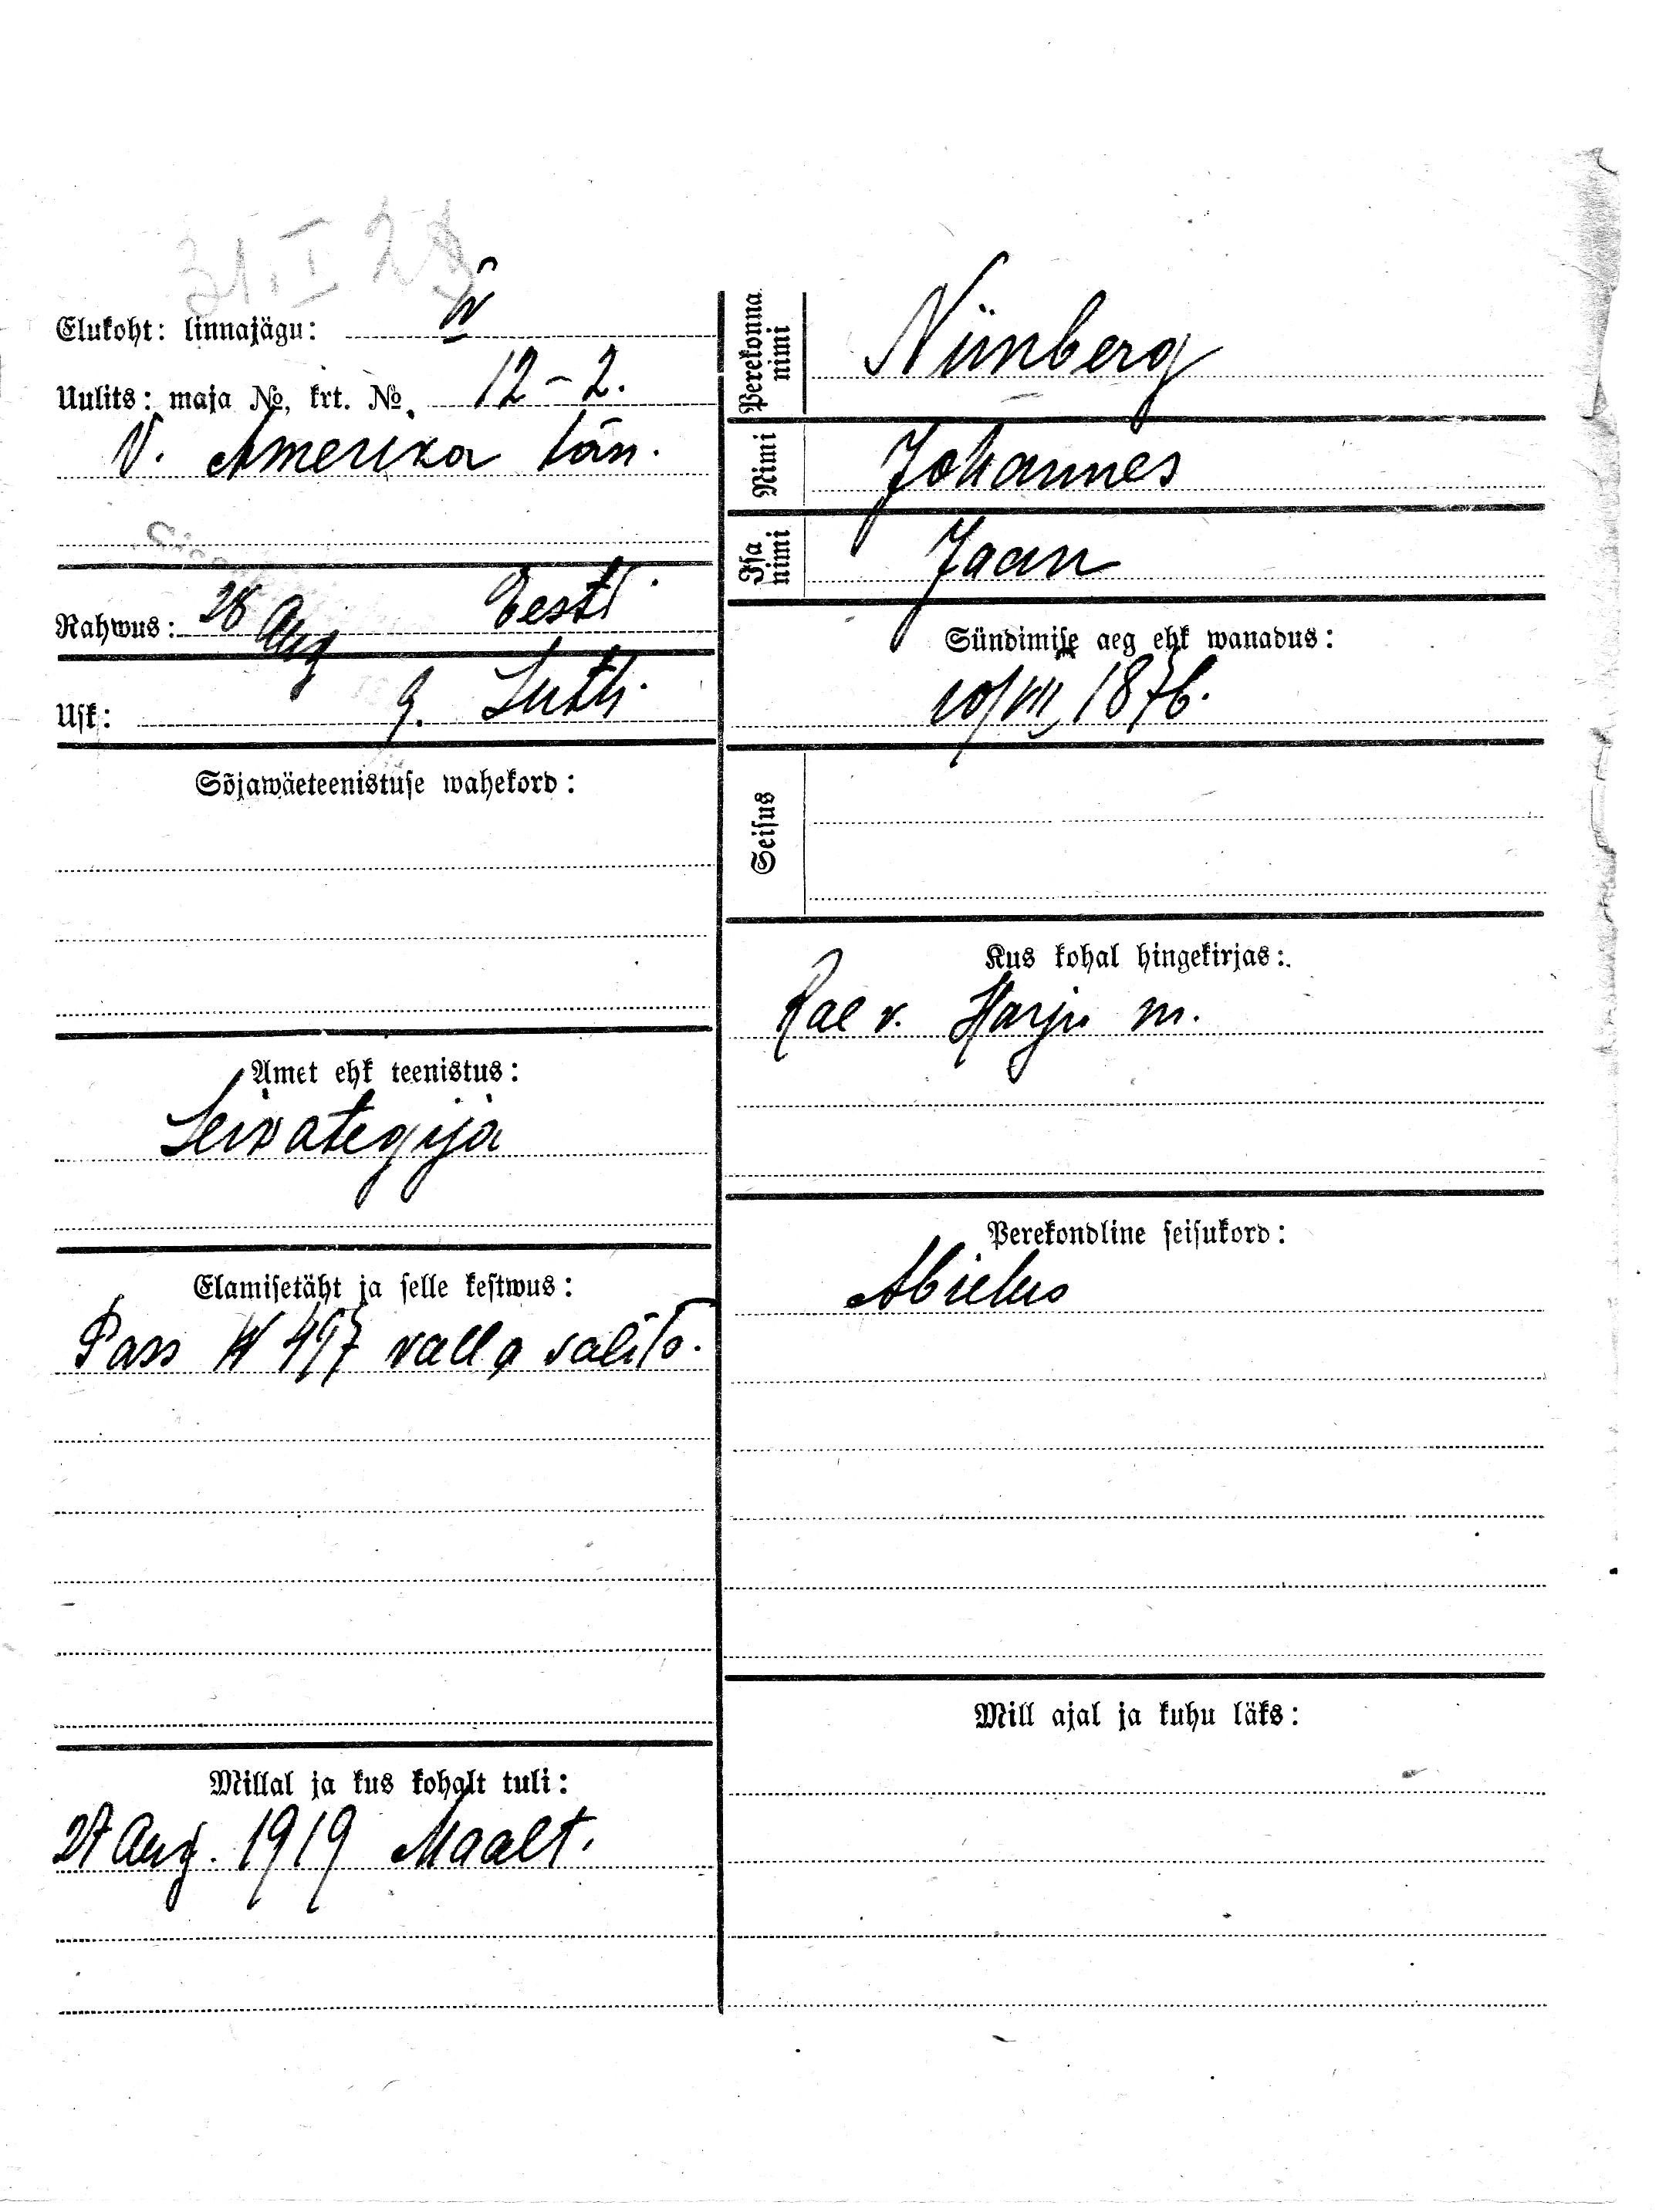 31. I 23
Elukoht: linnajägu: IV
Uulits: maja №, krt. № 12-2.
V. Amerika tän.
Rahwus: 28 Aug Eesti
Usk: 9. Luth.
Sõjawäeteenistuse wahekord:
Amet ehk teenistus:
Leivategija
Elamisetäht ja selle kestwus:
Pass № 497 valla valits.
Millal ja kus kohalt tuli:
27 Aug. 1919 Maalt.
Perekonna nimi Nürnberg
Nimi Johannes
Isa nimi Jaan
Sündimise aeg ehk wanadus:
10/VII 1876.
Seisus
Kus kohal hingekirjas:
Rae v. Harju m.
Perekondline seisukord:
Abielus
Mill ajal ja kuhu läks: